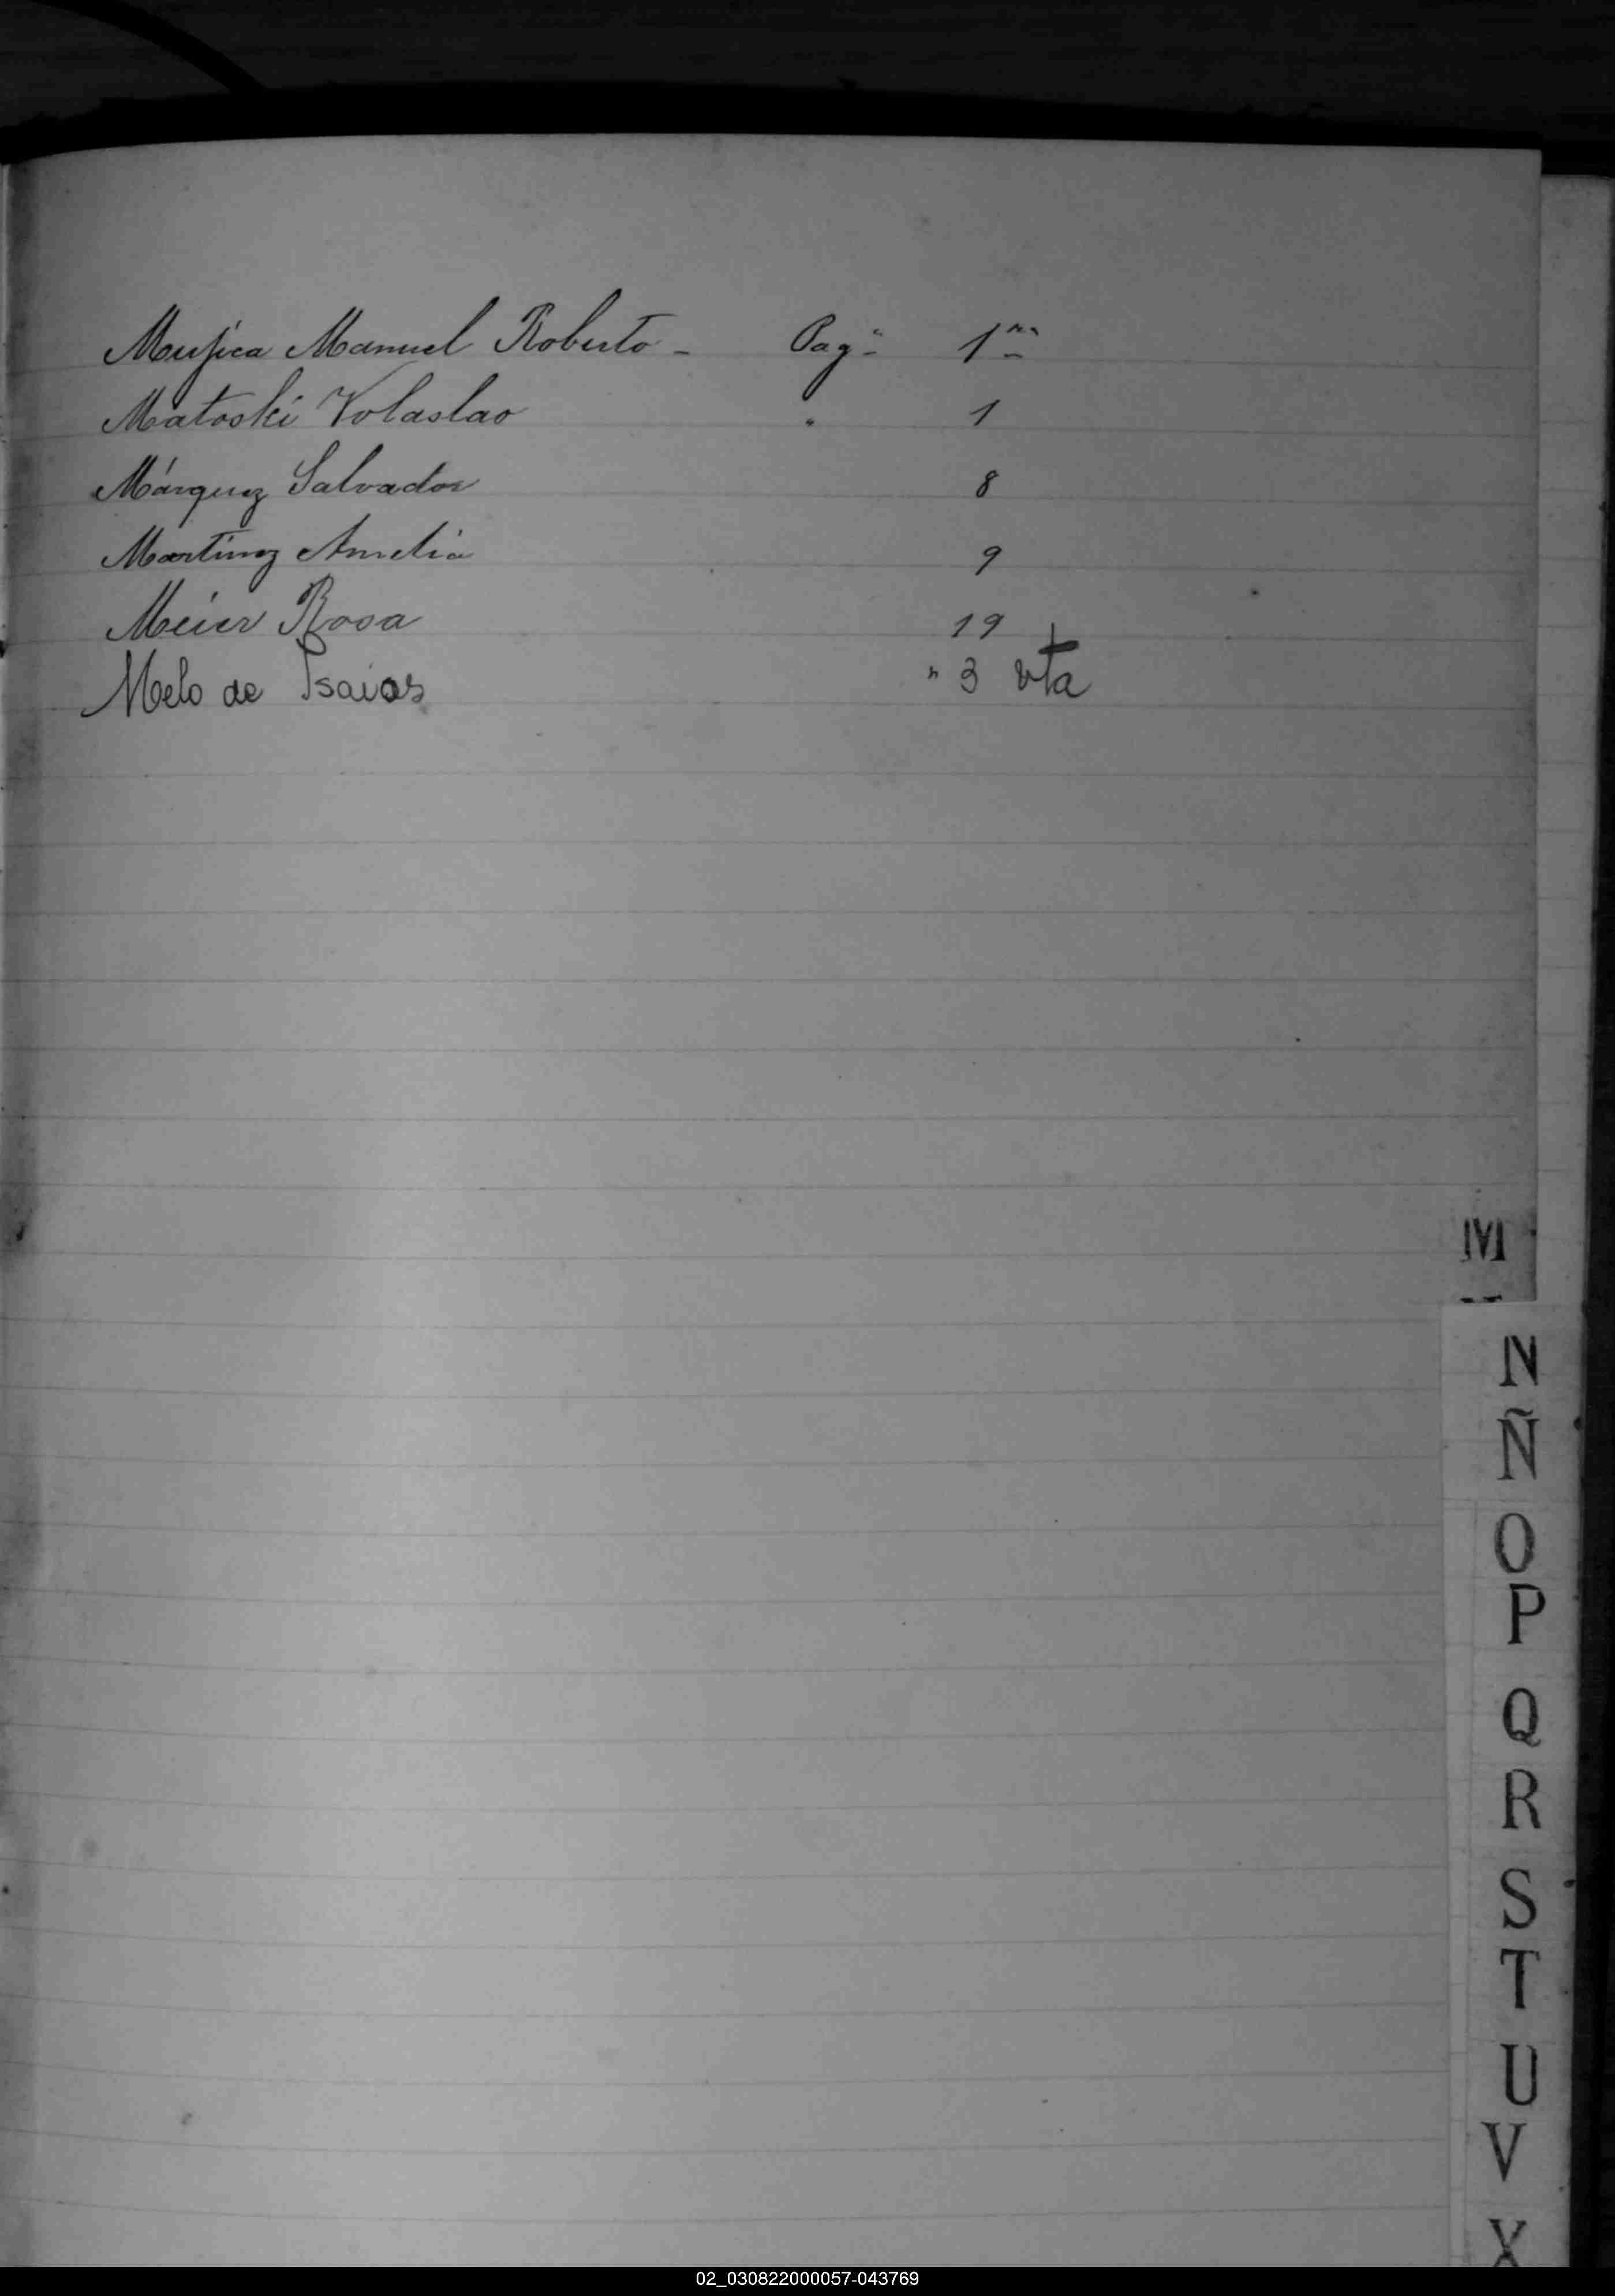 Mujica Manuel Roberto - Pag.ª 1ra
Matoski Volaslao " 1
Márquez Salvador 8
Martinez Amelia 9
Meier Rosa 19
Melo de Isaias " 3 vta
M
N
Ñ
O
P
Q
R
S
T
U
V
X
02_030822000057-043769